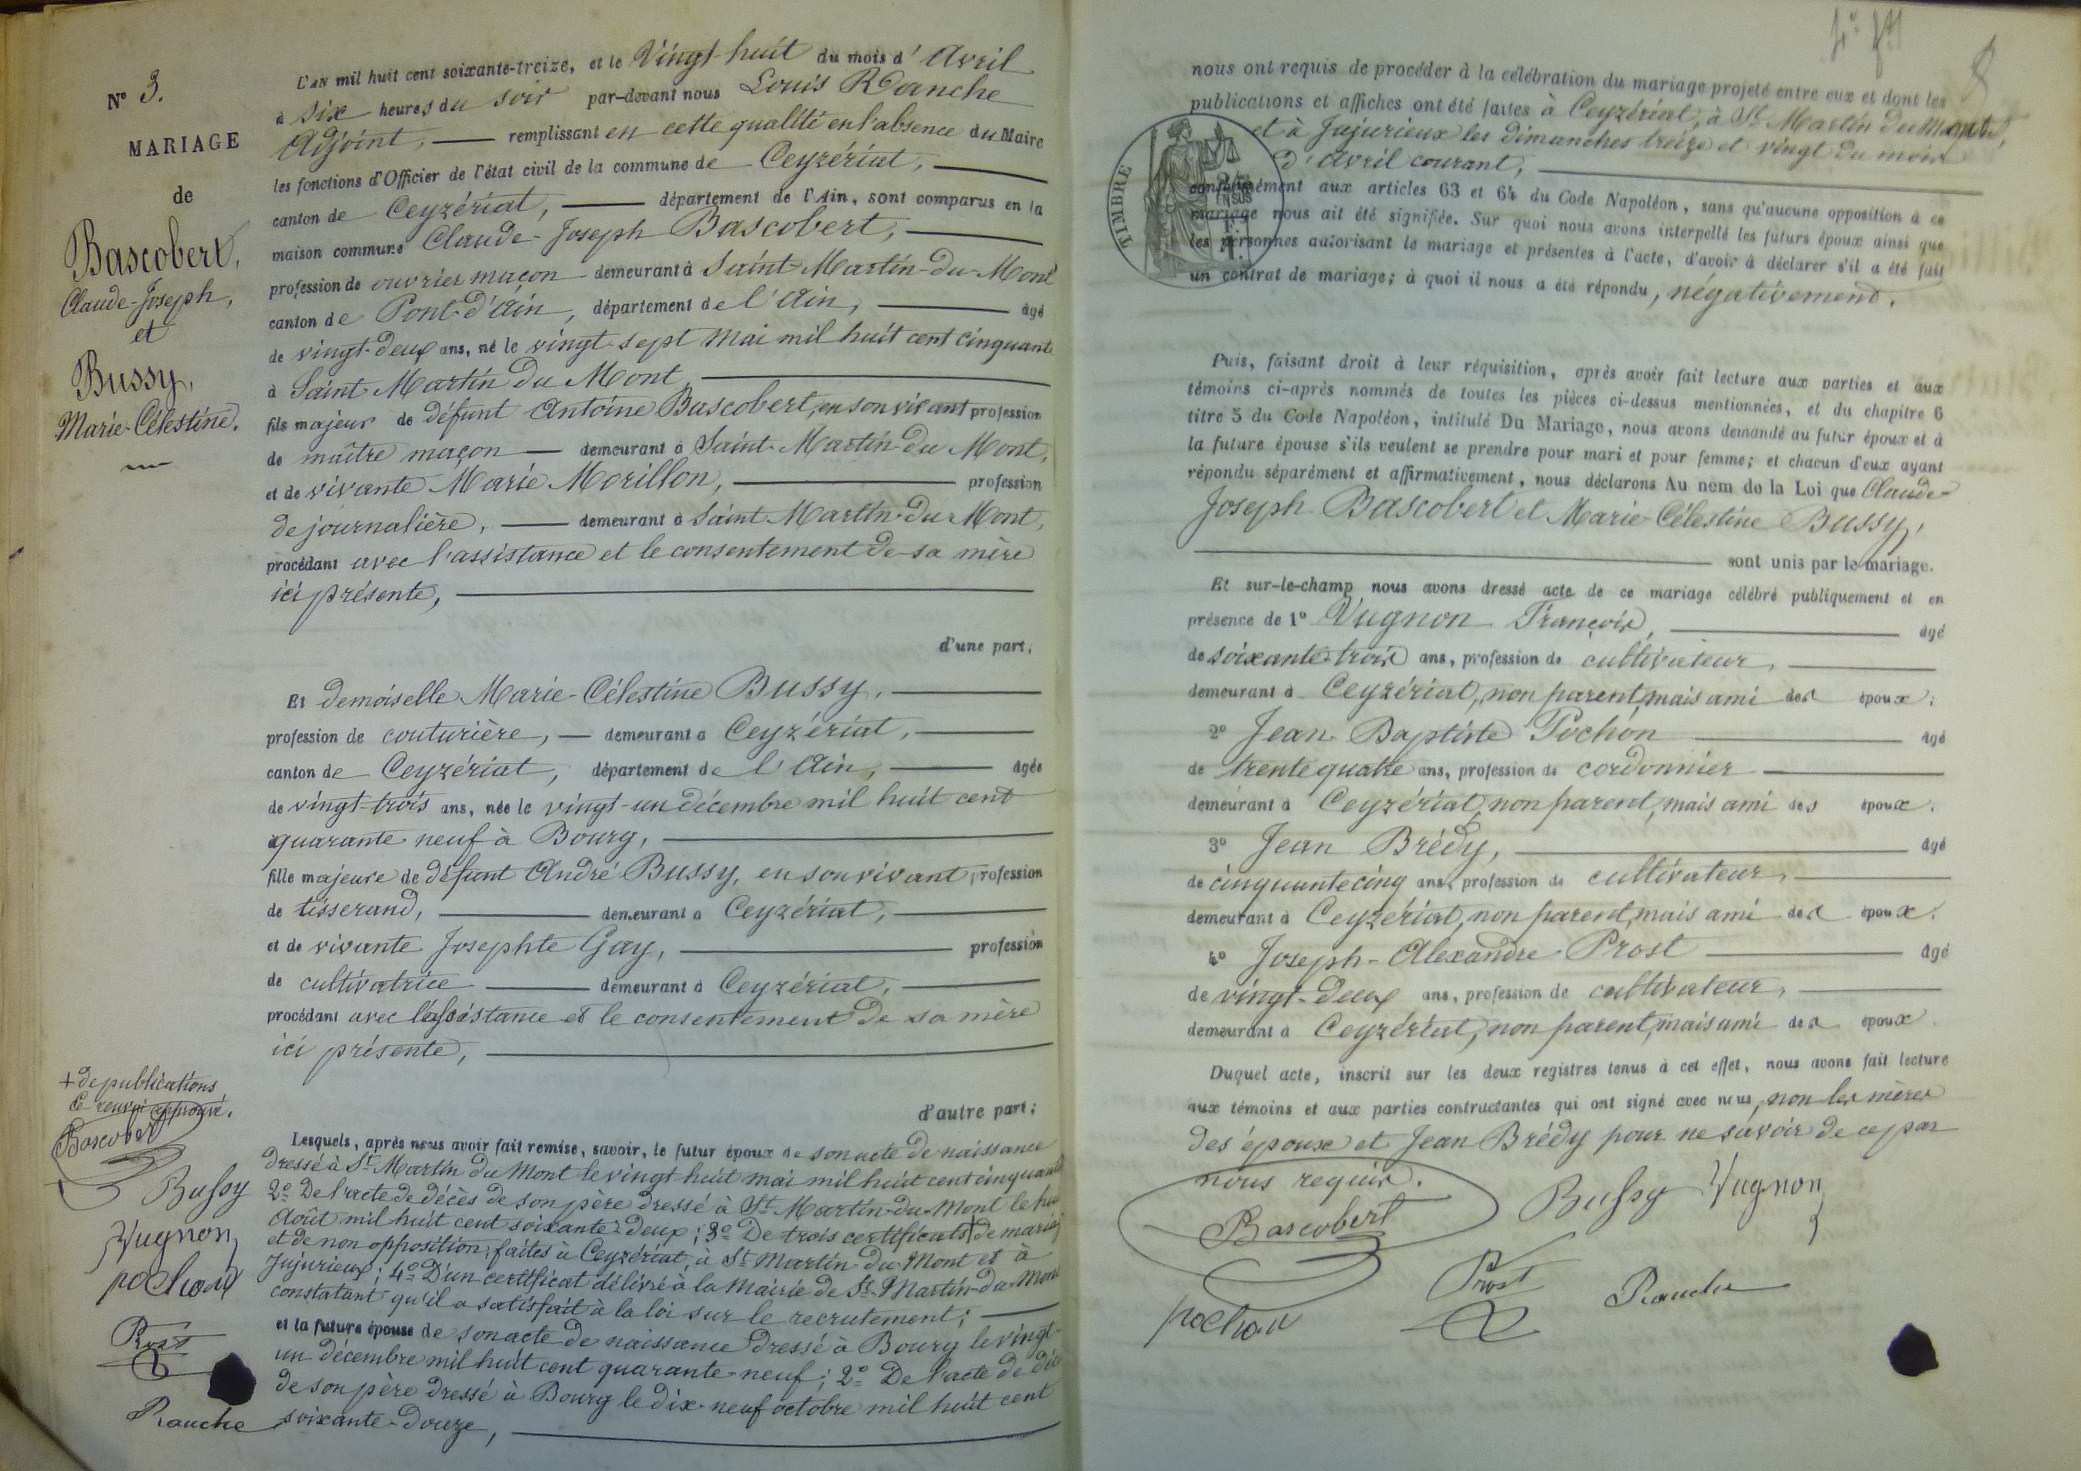 N° 3.
MARIAGE
de
Bascobert,
Claude-Joseph,
et
Bussy,
Marie-Célestine.
L'AN mil huit cent soixante-treize, et le Vingt-huit du mois d'Avril
à six heures du soir par-devant nous Louis Ranche
Adjoint, remplissant en cette qualité en l'absence du Maire
les fonctions d'Officier de l'état civil de la commune de Ceyzériat,
canton de Ceyzériat, département de l'Ain, sont comparus en la
maison commune Claude-Joseph Bascobert,
profession de ouvrier maçon demeurant à Saint-Martin-du-Mont
canton de Pont-d'Ain, département de l'Ain, âgé
de vingt-deux ans, né le vingt-sept Mai mil huit cent cinquante
à Saint-Martin du Mont
fils majeur de défunt Antoine Bascobert, en son vivant profession
de maître maçon demeurant à Saint-Martin-du-Mont,
et de vivante Marie Morillon, profession
de journalière, demeurant à Saint-Martin-du-Mont,
procédant avec l'assistance et le consentement de sa mère
ici présente,
d'une part,
Et demoiselle Marie-Célestine Bussy,
profession de couturière, demeurant à Ceyzériat,
canton de Ceyzériat, département de l'Ain, âgée
de vingt-trois ans, née le vingt-un décembre mil huit cent
quarante neuf à Bourg,
fille majeure de défunt André Bussy, en son vivant profession
de tisserand, demeurant à Ceyzériat,
et de vivante Josephte Gay, profession
de cultivatrice demeurant à Ceyzériat,
procédant avec l'assistance et le consentement de sa mère
ici présente,
d'autre part;
Lesquels, après nous avoir fait remise, savoir, le futur époux de son acte de naissance
dressé à St Martin du Mont le vingt-huit mai mil huit cent cinquante
2° De l'acte de décès de son père dressé à St Martin-du-Mont le
Août mil huit cent soixante-deux; 3° De trois certificats + de mariage
et de non opposition, faites à Ceyzériat, à St Martin du Mont et à
Jujurieux; 4° D'un certificat délivré à la Mairie de St-Martin-du-Mont
constatant qu'il a satisfait à la loi sur le recrutement;
et la future épouse de son acte de naissance dressé à Bourg le vingt-
un décembre mil huit cent quarante-neuf; 2° De l'acte de décès
de son père dressé à Bourg le dix-neuf octobre mil huit cent
soixante-douze,
+ de publications
Ce renvoi approuvé.
Bascobert
Bussy
Vugnon
pochon
Prost
Ranche
nous ont requis de procéder à la célébration du mariage projeté entre eux et dont les
publications et affiches ont été faites à Ceyzériat, à St Martin du Mont,
et à Jujurieux les dimanches treize et vingt du mois
d'avril courant,
conformément aux articles 63 et 64 du Code Napoléon, sans qu'aucune opposition à ce
mariage nous ait été signifiée. Sur quoi nous avons interpellé les futurs époux ainsi que
les personnes autorisant le mariage et présentes à l'acte, d'avoir à déclarer s'il a été fait
un contrat de mariage; à quoi il nous a été répondu, négativement.
TIMBRE
Puis, faisant droit à leur réquisition, après avoir fait lecture aux parties et aux
témoins ci-après nommés de toutes les pièces ci-dessus mentionnées, et du chapitre 6
titre 5 du Code Napoléon, intitulé Du Mariage, nous avons demandé au futur époux et à
la future épouse s'ils veulent se prendre pour mari et pour femme; et chacun d'eux ayant
répondu séparément et affirmativement, nous déclarons Au nom de la Loi que Claude-
Joseph Bascobert et Marie-Célestine Bussy,
sont unis par le mariage.
Et sur-le-champ nous avons dressé acte de ce mariage célébré publiquement et en
présence de 1° Vugnon François, âgé
de soixante-trois ans, profession de cultivateur,
demeurant à Ceyzériat, non parent, mais ami des époux;
2° Jean Baptiste Pochon âgé
de trente quatre ans, profession de cordonnier
demeurant à Ceyzériat, non parent, mais ami des époux.
3° Jean Brédy, âgé
de cinquante cinq ans, profession de cultivateur,
demeurant à Ceyzériat, non parent, mais ami des époux.
4° Joseph-Alexandre Prost âgé
de vingt-deux ans, profession de cultivateur,
demeurant à Ceyzériat, non parent, mais ami des époux
Duquel acte, inscrit sur les deux registres tenus à cet effet, nous avons fait lecture
aux témoins et aux parties contractantes qui ont signé avec nous, non les mères
des époux et Jean Brédy pour ne savoir de ce par
nous requis.
Bascobert
Bussy
Vugnon
pochon
Prost
Ranche